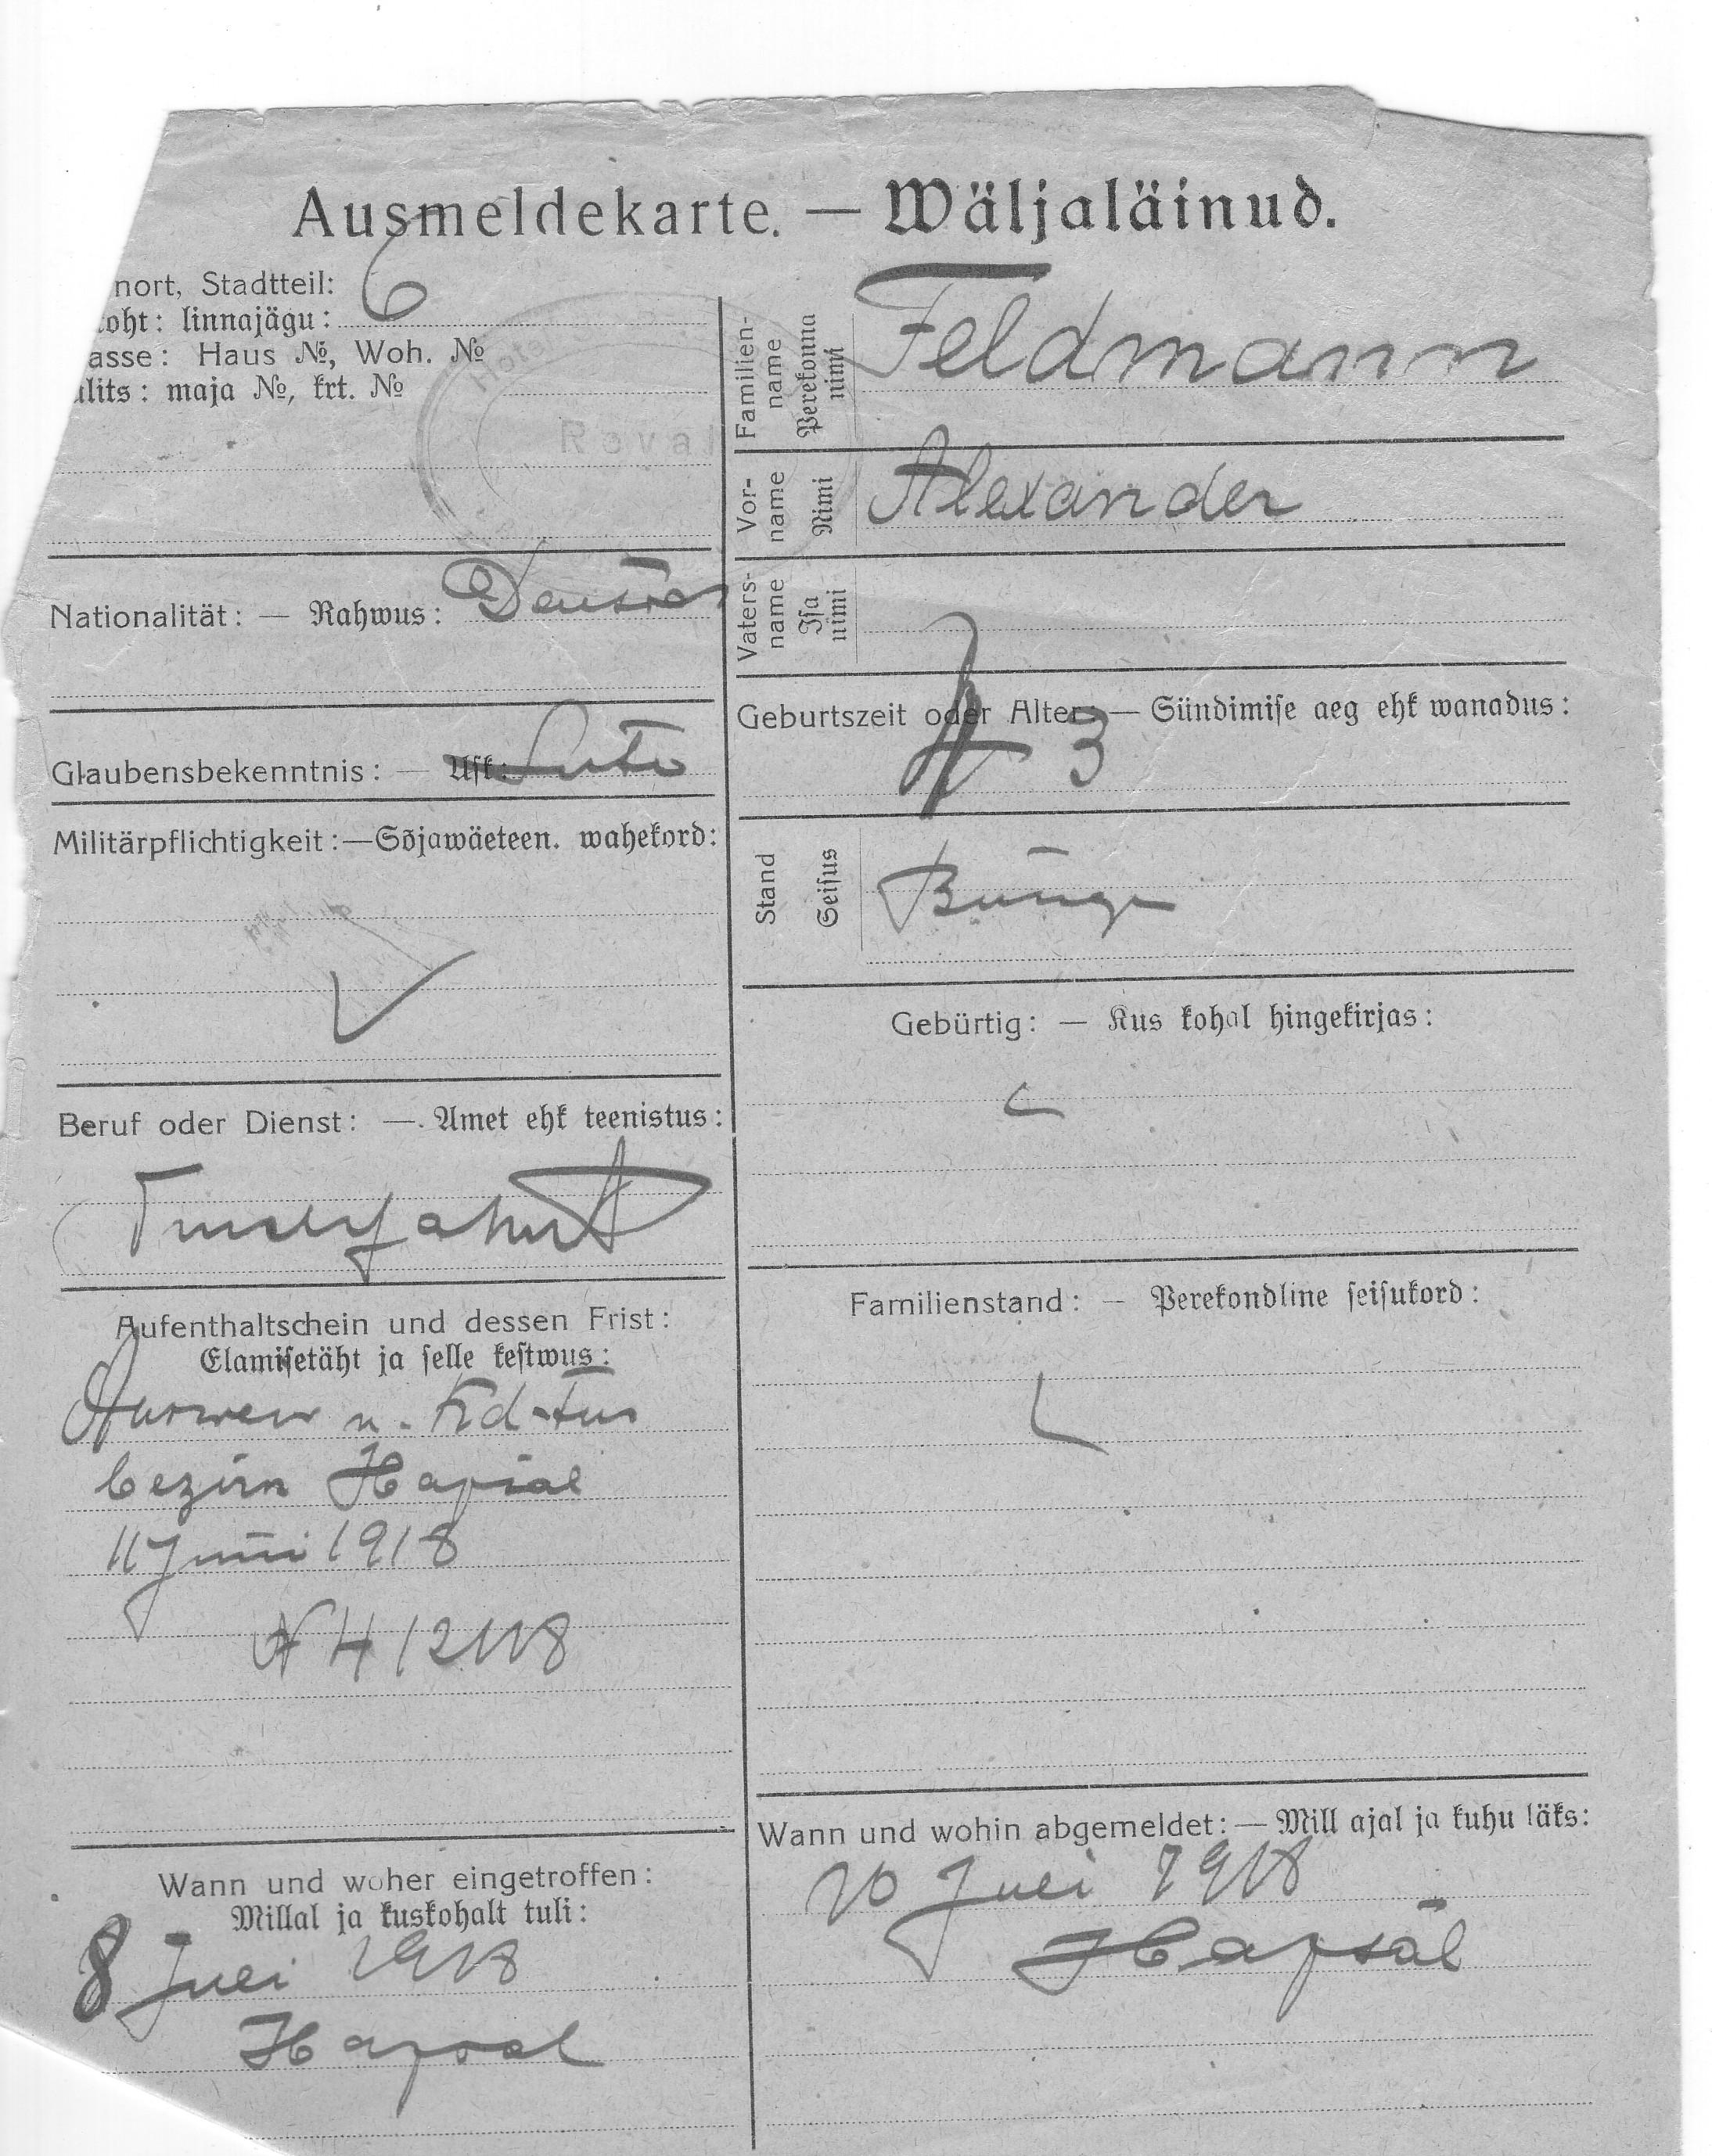 Ausmeldekarte. — Wäljaläinud.
nort, Stadtteil: 6
oht: linnajägu:
asse: Haus №, Woh. №
lits: maja №, krt. №
Hotel
Reval
Nationalität: — Rahwus:
Glaubensbekenntnis: — Usk:
Militärpflichtigkeit: — Sõjawäeteen. wahekord:
Beruf oder Dienst: — Amet ehk teenistus:
Aufenthaltschein und dessen Frist:
Elamisetäht ja selle kestwus:
bezirk Hapsal
11 Juni 1918
Wann und woher eingetroffen:
Millal ja kuskohalt tuli:
8 Juli 1918
Hapsal
Familien-
name
Perekonna
nimi
Feldmann
Vor-
name
Nimi
Alexander
Vaters-
name
Isa
nimi
Geburtszeit oder Alter — Sündimise aeg ehk wanadus:
Stand
Seisus
Gebürtig: — Kus kohal hingekirjas:
Familienstand: — Perekondline seisukord:
Wann und wohin abgemeldet: — Mill ajal ja kuhu läks:
10 Juli 1918
Hapsal